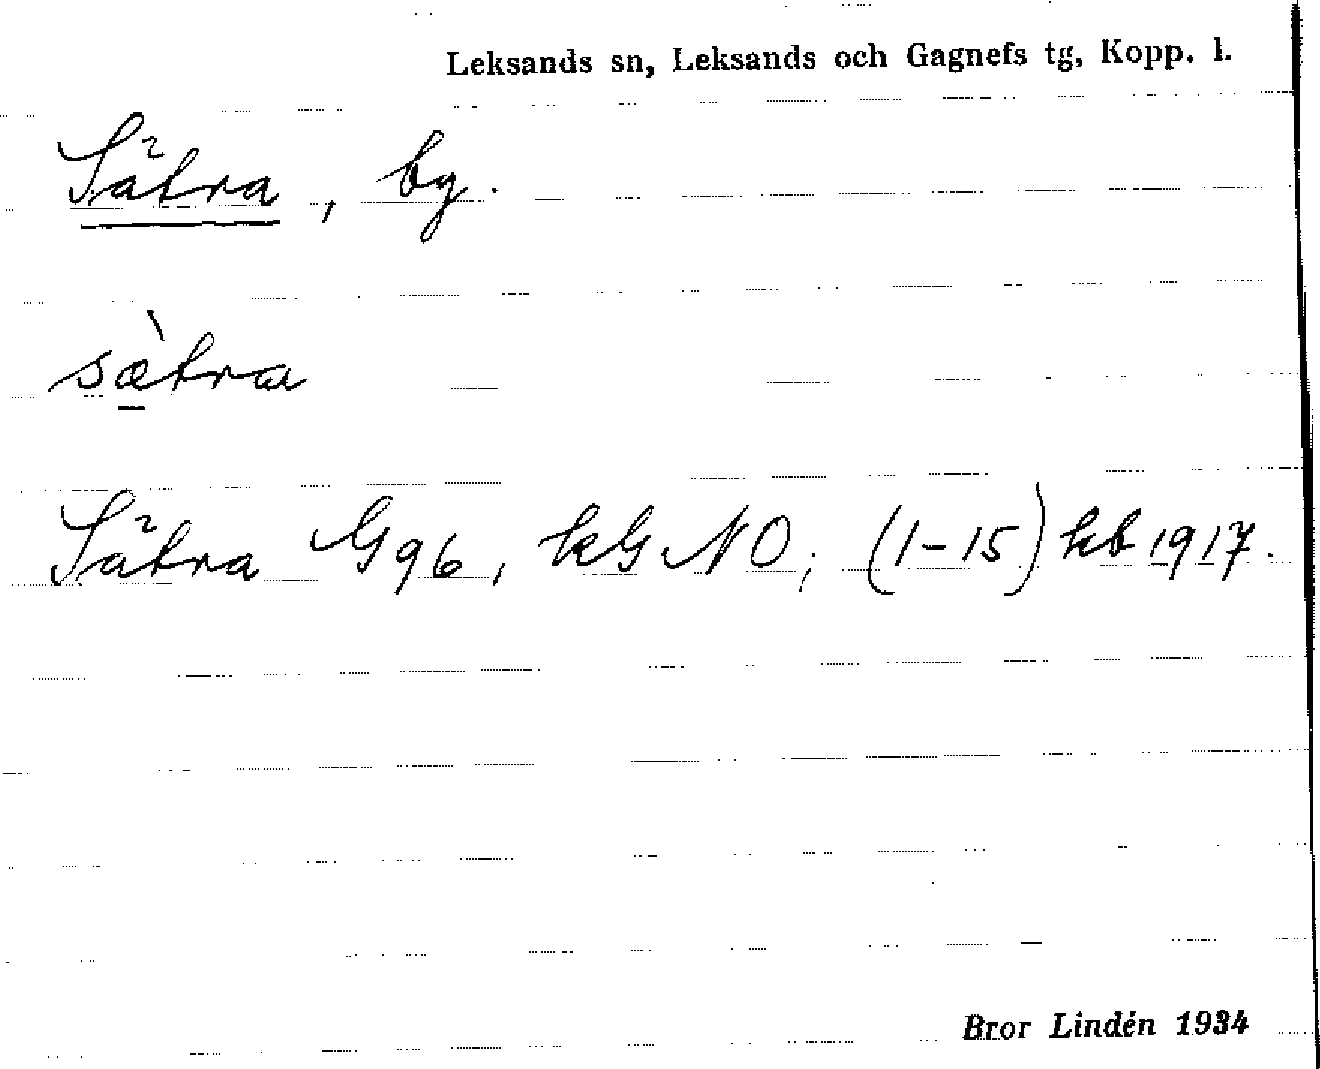 Leksands sn, Leksands och Gagnefs tg, Kopp. l.
Sätra, bg.
sæ̀tra
Sätra G 96, kG NO; (1-15) kb 1917.
Bror Lindén 1934